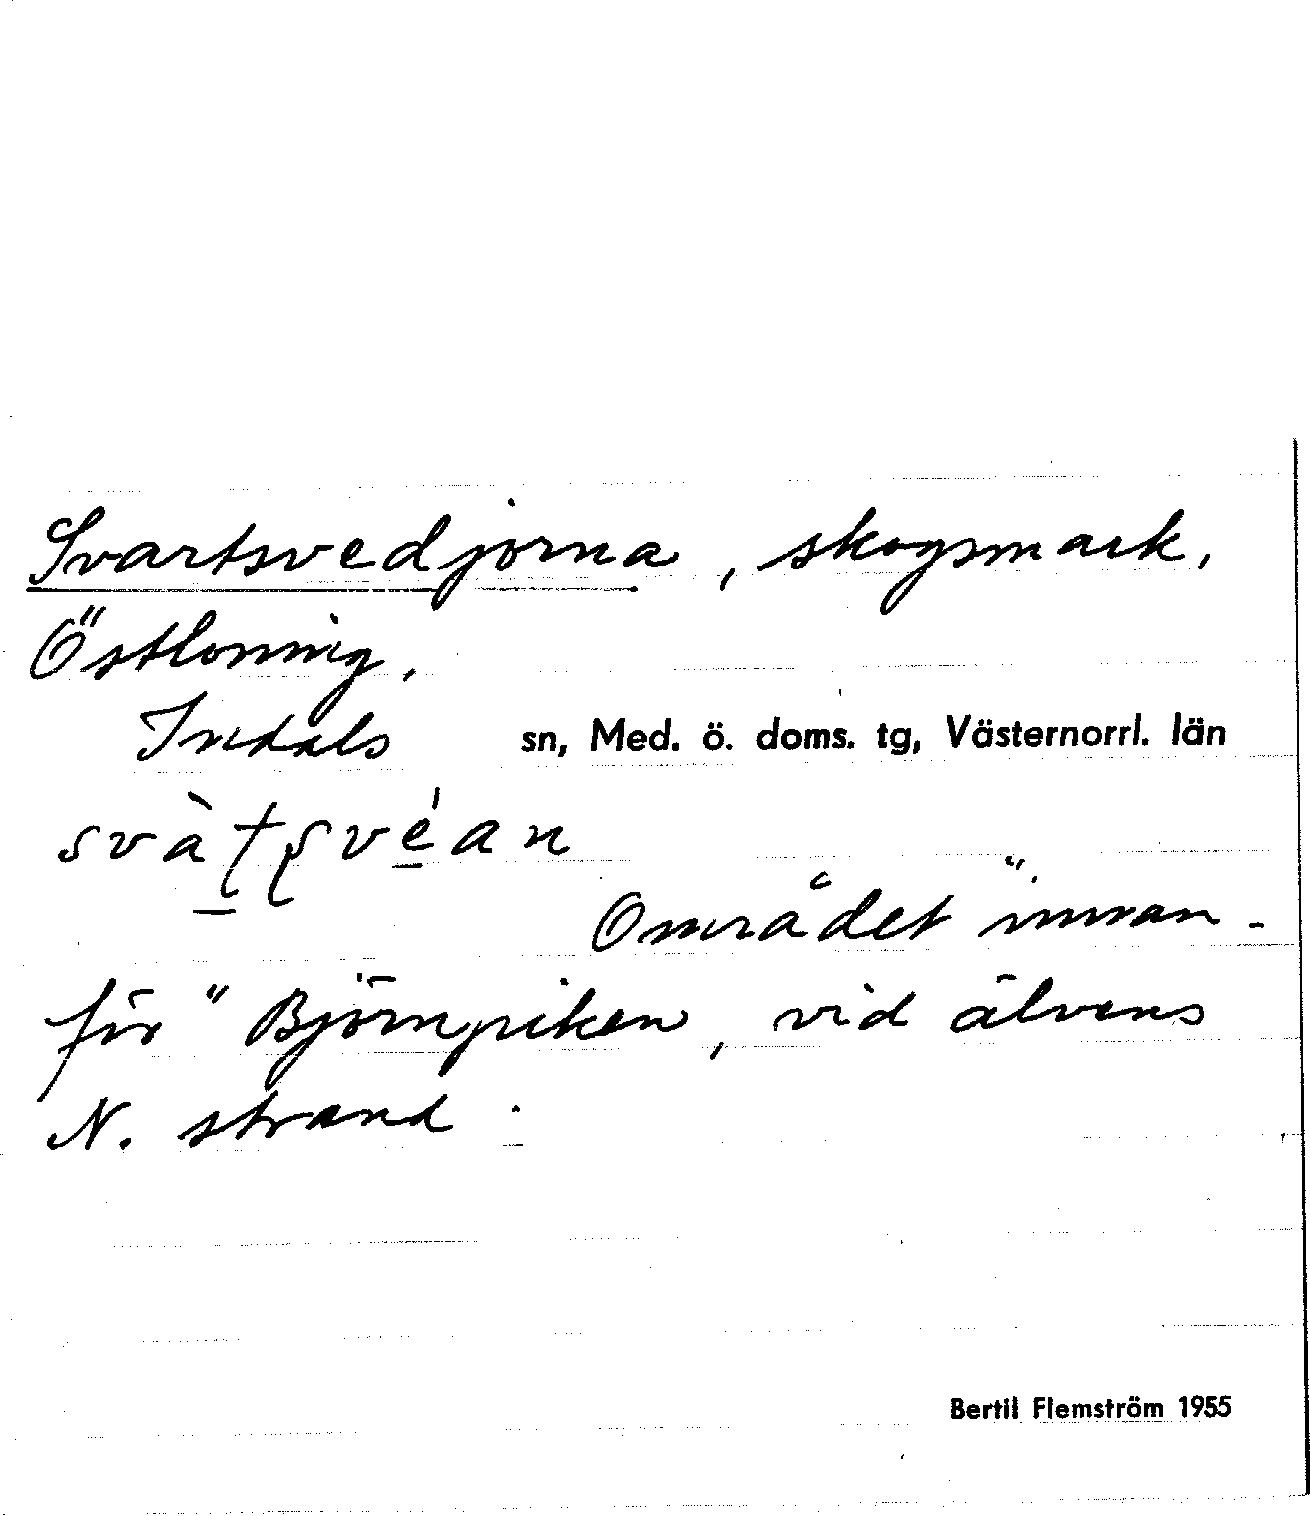 Svartsvedjorna, skogsmark,
Östloning.
Indals sn, Med. ö. doms. tg, Västernorrl. län
svàʈʂvéan
Området "innan-
för" Björnpiken, vid älvens
N. strand.
Bertil Flemström 1955